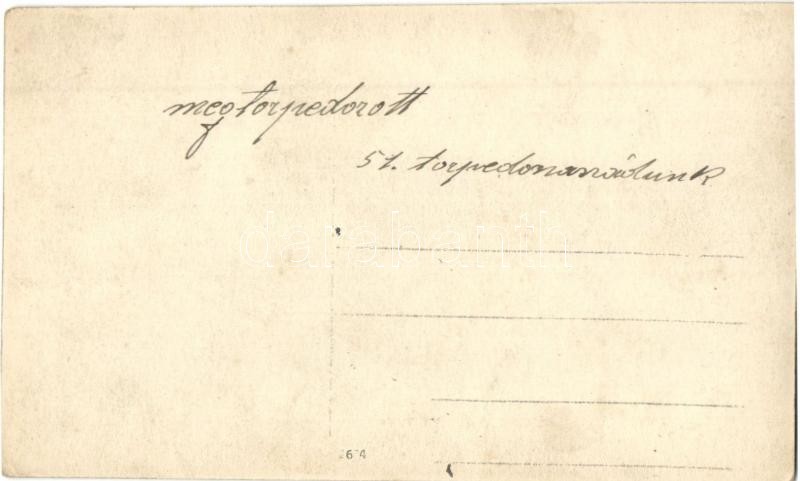 megtorpedorott
51. torpedonaszádunk
darabanth
674